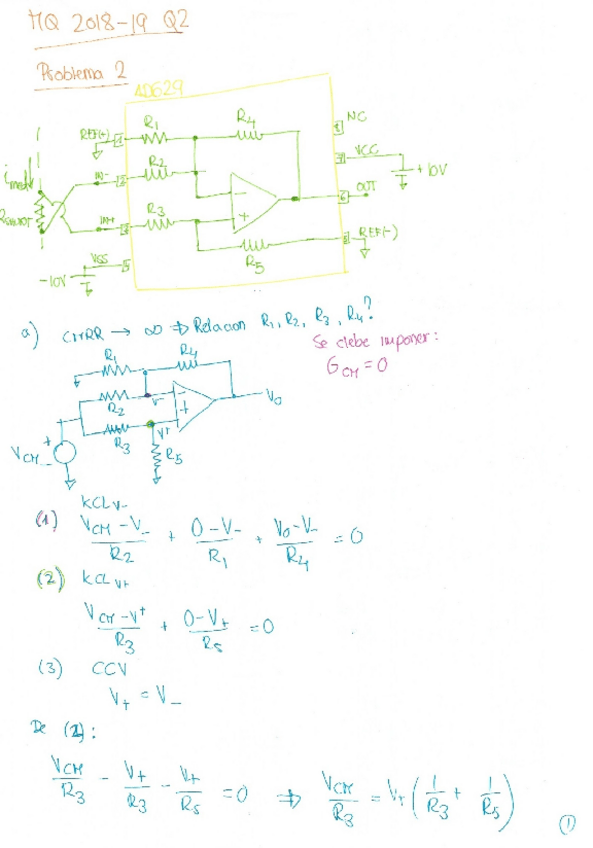 MQ 2018-19 Q2
Problema 2
AD629
REF(-) 1 R1 R4 NC
VCC
+10V
IN- 2 R2
OUT
6
IN+ R3
REF(-)
VSS 5
R5
-10V
a) CMRR → ∞ ⇒ Relacion R1, R2, R3, R4?
Se debe imponer:
GCM = 0
R1 R4
R2 V- Vo
R3 V+
VCM R5
KCL V-
(1) (VCM - V-)/R2 + (0 - V-)/R1 + (Vo - V-)/R4 = 0
(2) KCL V+
(VCM - V+)/R3 + (0 - V+)/R5 = 0
(3) CCV
V+ = V-
De (2):
VCM/R3 - V+/R3 - V+/R5 = 0 ⇒ VCM/R3 = V+ (1/R3 + 1/R5)
1